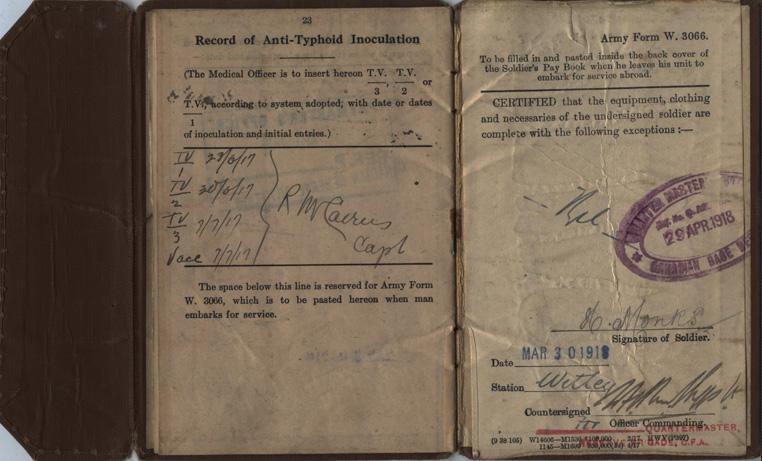 23
Record of Anti-Typhoid Inoculation
(The Medical Officer is to insert hereon T.V./3, T.V./2 or
T.V./1, according to system adopted; with date or dates
of inoculation and initial entries.)
TV/1 23/6/17
TV/2 30/6/17
TV/3 7/7/17
Vacc 7/7/17
Capt
The space below this line is reserved for Army Form
W. 3066, which is to be pasted hereon when man
embarks for service.
Army Form W. 3066.
To be filled in and pasted inside the back cover of
the Soldier's Pay Book when he leaves his unit to
embark for service abroad.
CERTIFIED that the equipment, clothing
and necessaries of the undersigned soldier are
complete with the following exceptions :—
Nil
QUARTER MASTER
29 APR.1918
CANADIAN
H. Monks
Signature of Soldier.
Date MAR 30 1918
Station Witley
Countersigned
for Officer Commanding.
QUARTERMASTER,
C.F.A.